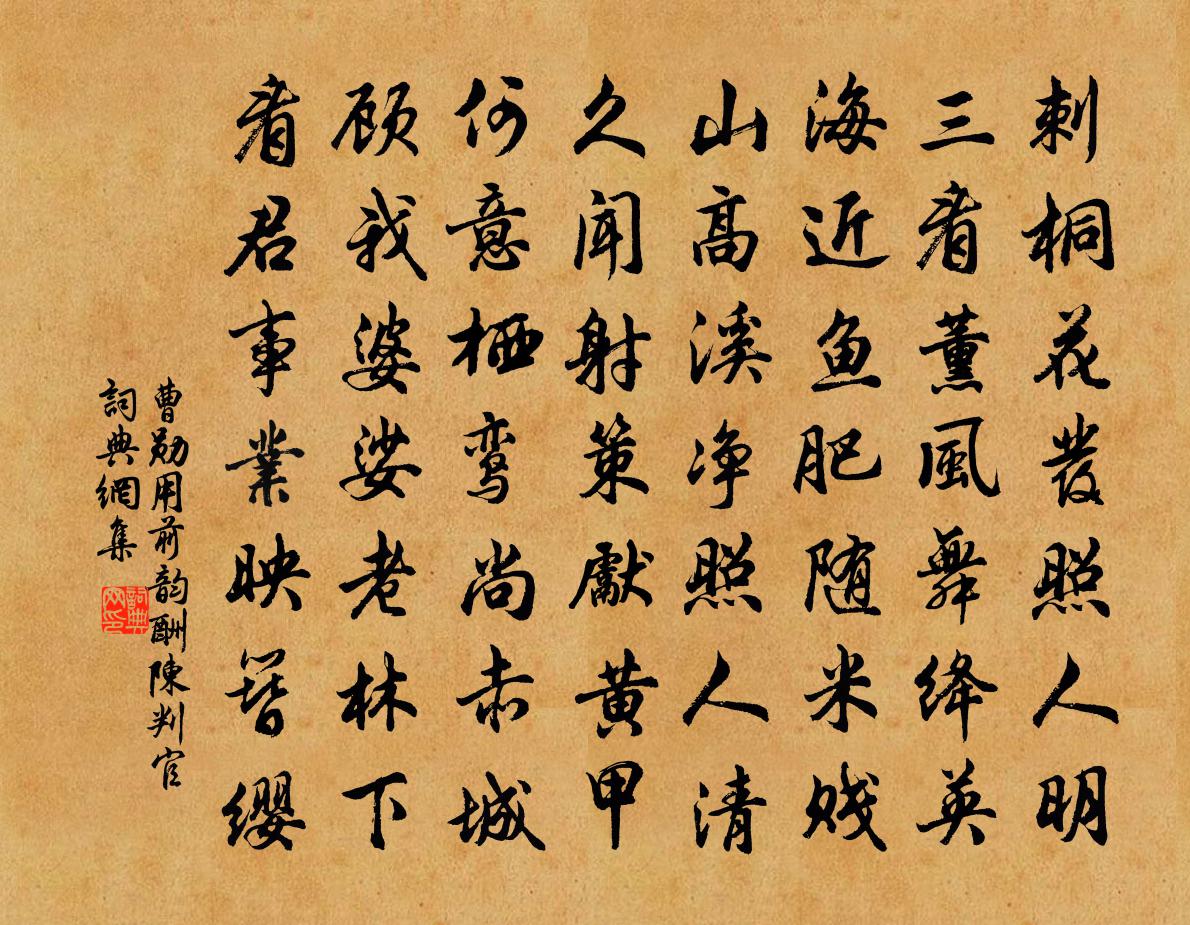 刺桐花發照人明
三看薰風舞绛英
海近魚肥随米贱
山高溪净照人清
久闻射策獻黄甲
何意栖鸾尚赤城
顾我婆娑老林下
看君事業映簪缨
曹勋用前韵酬陳判官
詞典網集
詞典网印